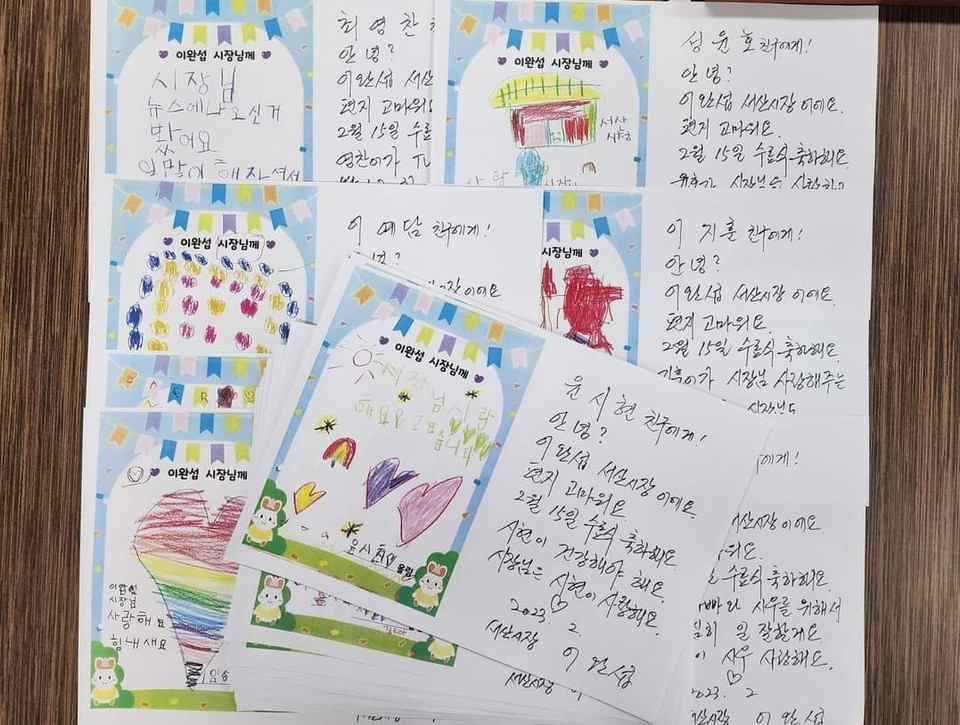 이완섭 시장님께
시장님
뉴스에나오신거
봤어요
최영찬
안녕?
이완섭 서산
편지 고마워
2월 15일 수료
영찬이가
이완섭 시장님께
서산
시청
사랑
성윤호 친구에게!
안녕?
이완섭 서산시장이에요.
편지 고마워요.
2월 15일 수료식 축하해요
이완섭 시장님께
이예담 친구에게!
시장님께
이지훈 친구에게!
안녕?
이완섭 서산시장이에요.
편지 고마워요.
2월 15일 수료식 축하해요.
지훈이가 시장님 사랑해주는
시장님도
이완섭 시장님께
시장님 사랑
해요
윤시현
윤시현 친구에게!
안녕?
이완섭 서산시장이에요.
편지 고마워요
2월 15일 수료식 축하해요
시현이 건강해야 해요.
시장님은 시현이 사랑해요.
2023. 2.
서산시장 이완섭
이완섭 시장님께
이완섭
시장님
사랑해요
힘내세요
에게!
서산시장이에요
수료식 축하해요
아빠와 사우를 위해서
열심히 일 잘할게요.
사우 사랑해요.
2023. 2
서산시장 이완섭
서산시장